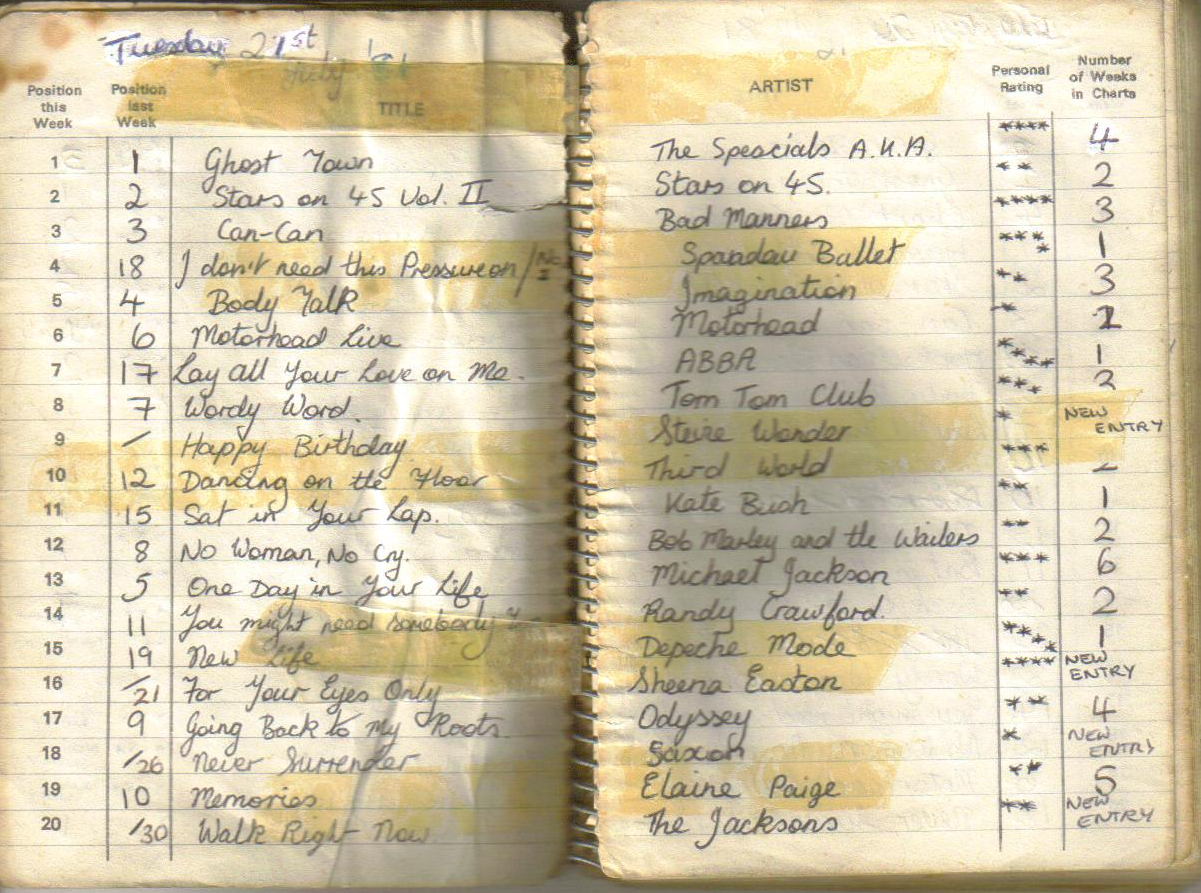 Tuesday 21st
July '81
Position this Week Position last Week TITLE ARTIST Personal Rating Number of Weeks in Charts
1 1 Ghost Town The Speacials A.K.A. **** 4
2 2 Stars on 45 Vol. II Stars on 45. ** 2
3 3 Can-Can Bad Manners **** 3
4 18 I don't need this Pressure on / Spandau Ballet **** 1
5 4 Body Talk Imagination ** 3
6 6 Motorhead Live Motorhead *
7 17 Lay all Your Love on Me. ABBA **** 1
8 7 Wordy Word. Tom Tom Club *** 3
9 / Happy Birthday Stevie Wonder * NEW ENTRY
10 12 Dancing on the Floor Third World ***
11 15 Sat in Your Lap. Kate Bush ** 1
12 8 No Woman, No Cry. Bob Marley and the Wailers ** 2
13 5 One Day in Your Life Michael Jackson *** 6
14 11 You might need somebody Randy Crawford. ** 2
15 19 New Life Depeche Mode **** 1
16 /21 For Your Eyes Only Sheena Easton **** NEW ENTRY
17 9 Going Back to My Roots. Odyssey ** 4
18 /26 Never Surrender Saxon * NEW ENTRY
19 10 Memories Elaine Paige ** 5
20 /30 Walk Right Now. The Jacksons ** NEW ENTRY